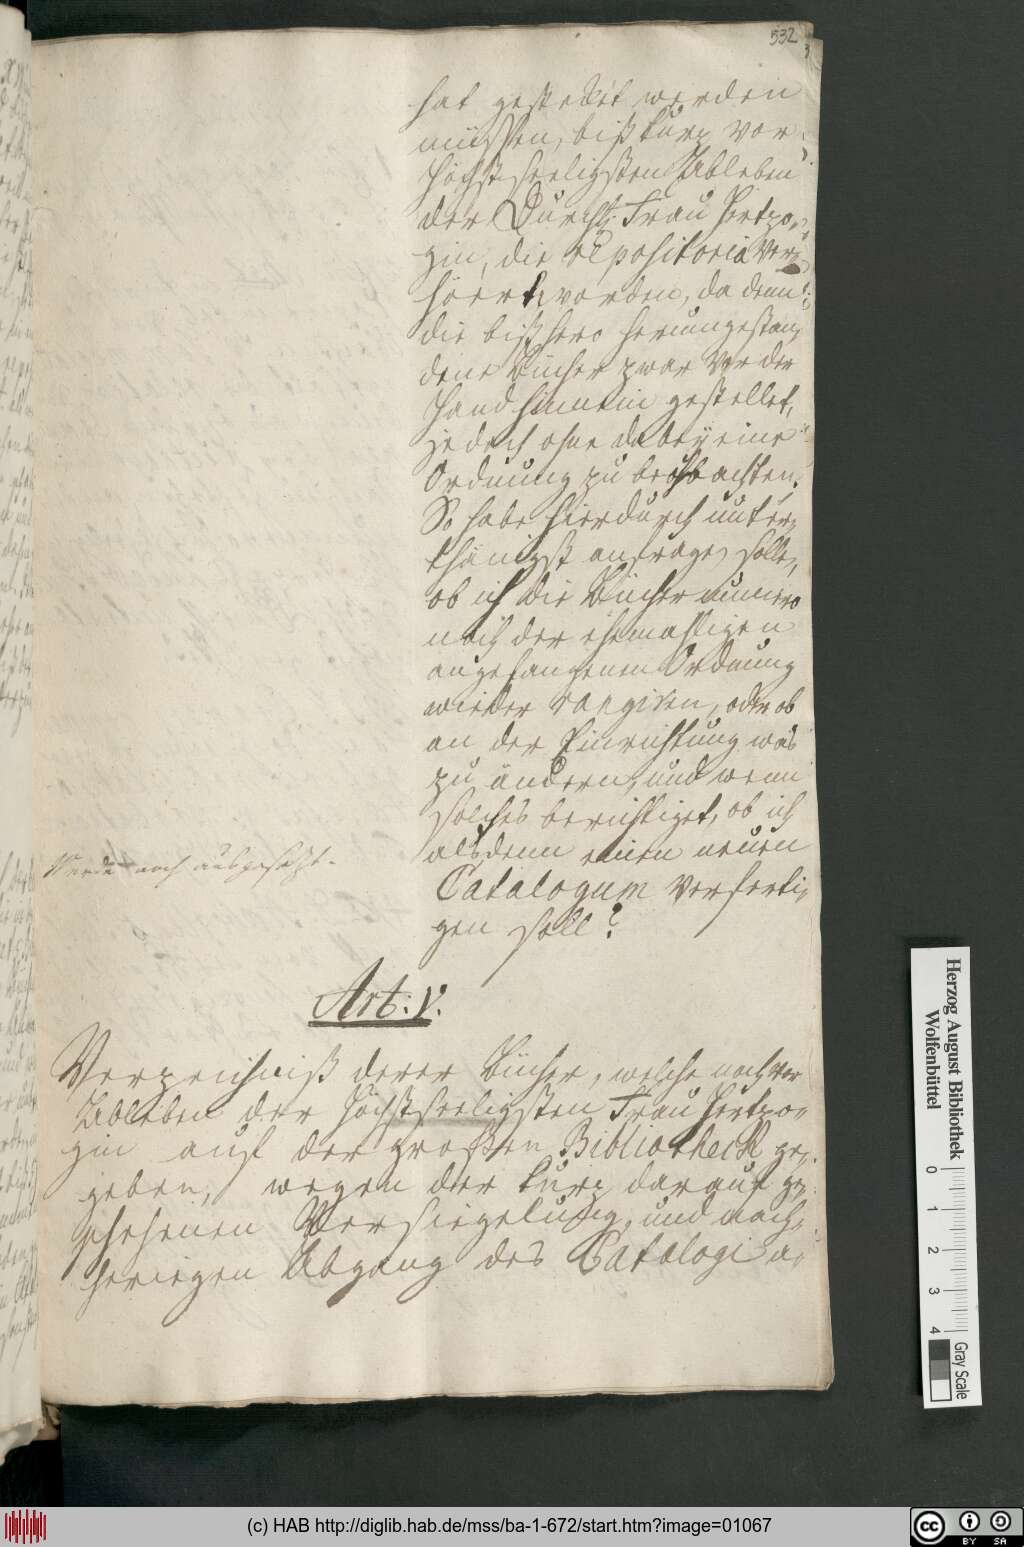 532
hat gestecket werden
müssen, biß kurz vor
höchstseeligsten Ableben
der Durchl: Frau Hertzo-
gin, die repositoria ver-
worden, da denn
die bißhero herumgestan-
dene Bücher zwar vor der
Hand hinein gestellet,
jedoch ohne dabey eine
Ordnung zu beobachten.
So habe hierdurch unter-
thänigst anfragen sollen,
ob ich die Bücher nunmero
nach der ehemahligen
angefangenen Ordnung
wieder rangiren, oder ob
an der Einrichtung was
zu ändern, und wenn
solches berichtiget, ob ich
alsdenn einen neuen
Catalogum verferti-
gen soll?
Werde noch ausgesetzt.
Art: V.
Verzeichniß derer Bücher, welche noch vor
Ableben der Höchstseeligsten Frau Hertzo-
gin auf der großen Bibliotheck ge-
geben, wegen der kurz darauf ge-
schehenen Versiegelung, und nach-
herigen Abgang des Catalogi a-
Herzog August Bibliothek
Wolfenbüttel
0 1 2 3 4
Gray Scale
(c) HAB http://diglib.hab.de/mss/ba-1-672/start.htm?image=01067
cc BY SA